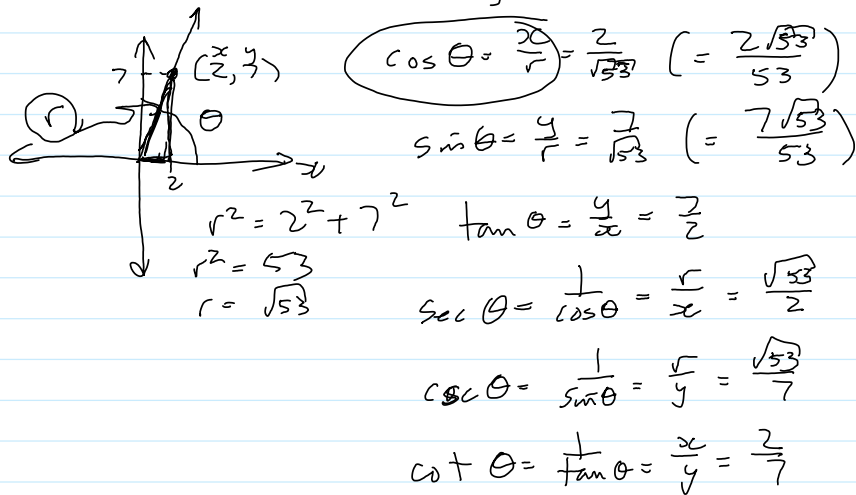 (2, 7)
x y
7
r
θ
2
x
r² = 2² + 7²
r² = 53
r = √53
cos θ = x/r = 2/√53 (= 2√53/53)
sin θ = y/r = 7/√53 (= 7√53/53)
tan θ = y/x = 7/2
sec θ = 1/cos θ = r/x = √53/2
csc θ = 1/sin θ = r/y = √53/7
cot θ = 1/tan θ = x/y = 2/7